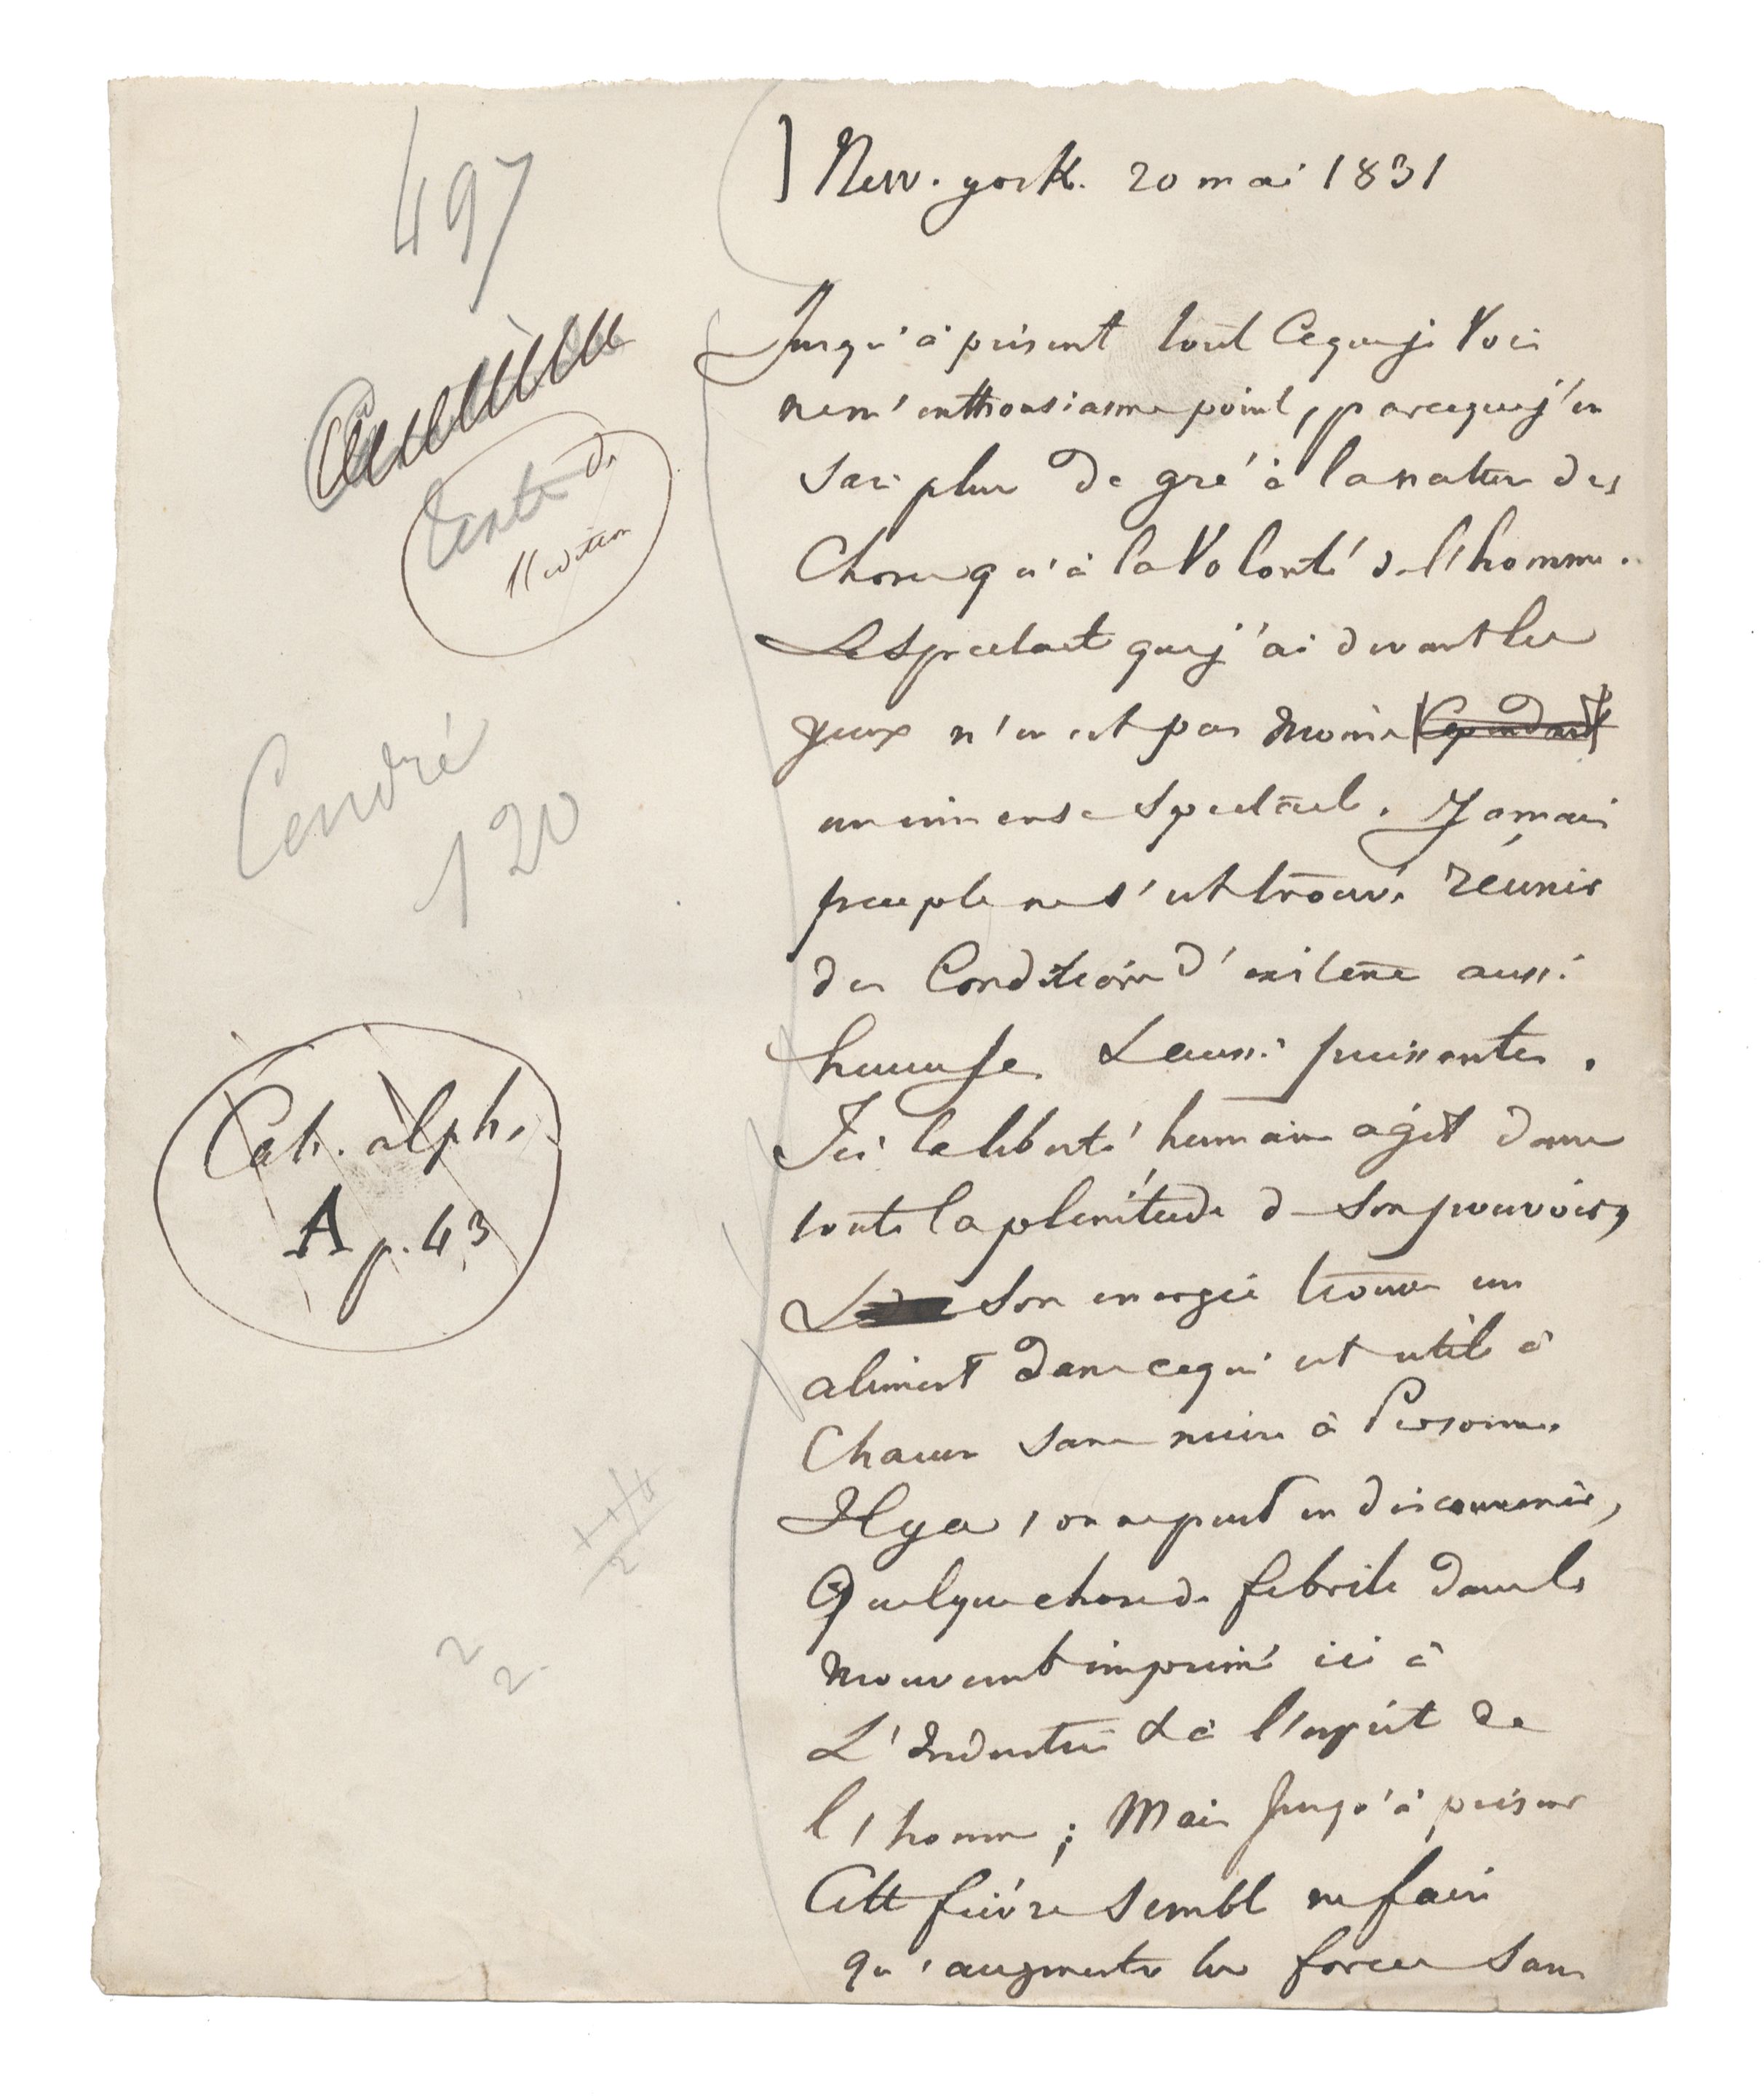 497
] New-york. 20 mai 1831
Jusqu'à présent tout ce que je vois
ne m'enthousiasme point, parceque j'en
sais plus de gré à la nature des
choses qu'à la Volonté de l'homme.
Le spectacle que j'ai devant les
yeux n'en est pas moins Cependant
un immense spectacle. Jamais
peuple ne s'est trouvé réunir
des Conditions d'existence aussi
heureuses & aussi puissantes.
Ici la liberté humaine agit dans
toute la plénitude de son pouvoir,
& son énergie trouve un
aliment dans ce qui est utile à
Chacun sans nuire à Personne.
Il y a, on ne peut en disconvenir,
Quelque chose de fébrile dans le
mouvement imprimé ici à
L'Industrie & à l'esprit de
l'homme ; Mais Jusqu'à présent
Cette fièvre semble ne faire
qu'augmenter les forces sans
texte de
l'édition
Cendré
120
Cah. alph.
A p. 43
2
2